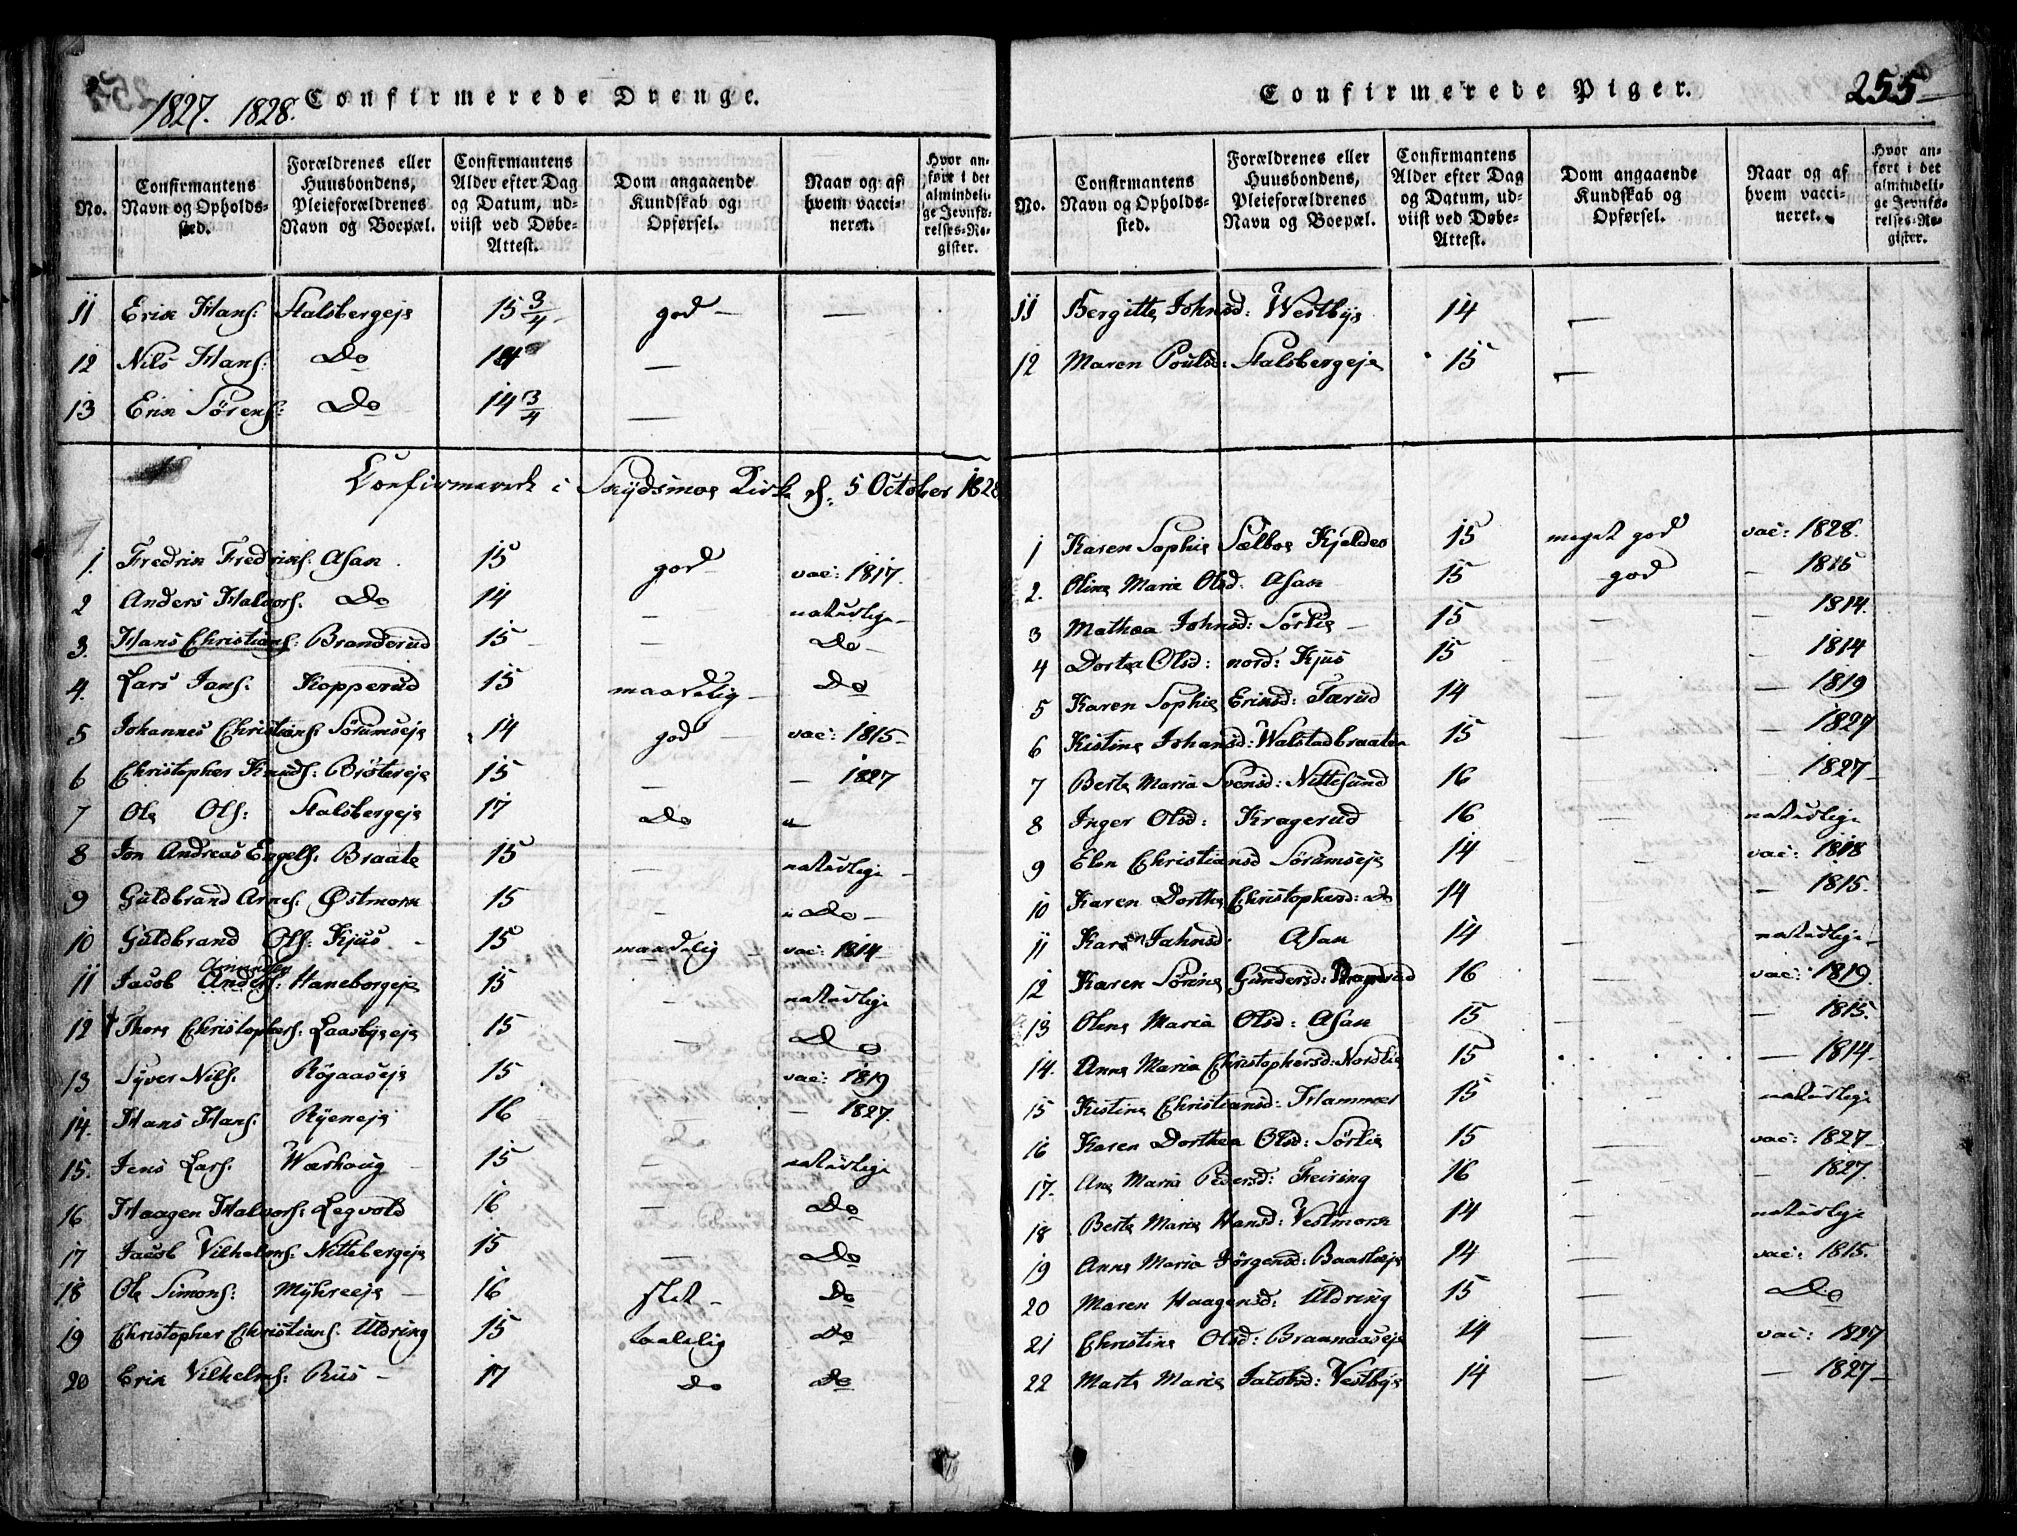 1827. 1828. Confirmerede Drenge.
No. | Confirmantens Navn og Opholdssted. | Forældrenes eller Huusbondens, Pleieforældrenes Navn og Boepæl. | Confirmantens Alder efter Dag og Datum, udviist ved Døbe-Attest. | Dom angaaende Kundskab og Opførsel. | Naar og af hvem vaccineret. | Hvor anført i det almindelige Jevnførelses-Register.
11 Erik Hans: Stalsbergeje 15 3/4 god — —
12 Nils Hans: Do 14 —
13 Erik Sørens: Do 14 3/4 —
Confirmerede i Skydsmoe Kirke d: 5 October 1828
1. Fredrik Fredriks: Asak 15 god vac: 1817.
2 Anders Halvors: Do 14 — naturlige
3. Hans Christians: Branderud 15 — Do
4. Lars Jans: Kopperud 15 maadelig Do
5 Johannes Christians: Sørumseje 14 god vac: 1815
6 Christopher Knuds: Brøttereje 15 — — 1827
7 Ole Ols: Stalsbergeje 17 Do "
8 Jon Andreas Engels: Braate 15 — naturlige
9 Guldbrand Arnes: Østmork 15 — Do
10 Guldbrand Ols: Kjus 15 maadelig vac: 1814
11 Jacob Anders: Haneborgeje 15 — naturlige
12 Thore Christophers: Laasbyeje 15 — Do
13 Syver Nils: Røjaaseje 15 vac: 1819
14. Hans Hans: Ryeneje 16 — — 1827.
15. Jens Lars: Warhoug 15 — naturlige
16 Haagen Halvors: Legvold 16 — Do
17 Jacob Vilhelms: Nittebergeje 15 — Do
18 Ole Simons: Myhreeje 16 slet Do
19 Christopher Christians: Uldring 15 taalelig Do
20 Erik Vilhelms: Rus 17 Do Do
Confirmerede Piger. 255
No. | Confirmantens Navn og Opholdssted. | Forældrenes eller Huusbondens, Pleieforældrenes Navn og Boepæl. | Confirmantens Alder efter Dag og Datum, udviist ved Døbe-Attest. | Dom angaaende Kundskab og Opførsel. | Naar og af hvem vaccineret. | Hvor anført i det almindelige Jevnførelses-Register.
11 Bergitte Johnsd: Westbye 14 —
12 Maren Poulsd: Stalsbergeje 15 —
1 Karen Sophie Sælboe Kjeldes 15 meget god vac: 1828.
2. Oline Maria Olsd. Asak 15 god — 1815
3 Mathea Johnsd: Sørlie 15 — — 1814.
4 Dortea Olsd: nord: Kjus 15 — — 1814
5 Karen Sophie Eriksd: Tærud 14 — — 1819
6 Kistine Johansd: Walstadbraaten 15 — — 1827
7 Berte Maria Svensd: Nittesund 16 — 1827
8 Inger Olsd: Kragerud 16 — naturlige
9 Elen Christiansd Sørumseje 14 — vac: 1818
10 Karen Dorthe Christophersd: Do 14 — — 1815.
11 Kari Jahnsd: Asak 14 — naturlige
12 Karen Sørine Gundersd: 16 — vac: 1819.
13 Olene Maria Olsd: Asak 15 — — 1815.
14. Anne Maria Christophersd: Nordlie 15 — 1814
15 Kistine Christiansd: Hammer 15 — naturlige
16 Karen Dorthea Olsd: Sørlie 15 — vac: 1827
17. Ane Maria Pedersd: Freiring 16 — — 1827.
18 Berte Marie Hansd: Vestmork 14 — naturlige
19 Anne Maria Jørgensd: 14 — vac: 1815.
20 Maren Haagensd: Uldring 15 — Do
21 Christine Olsd: Braanaaseje 14 — vac: 1827
22 Marte Marie Jacobsd: Vestbye 14 — — 1827